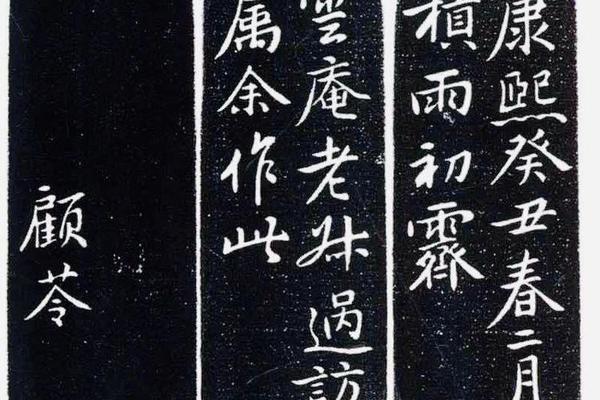 康熙癸丑春二月
積雨初霽
雲庵老叔過訪
属余作此
顧苓